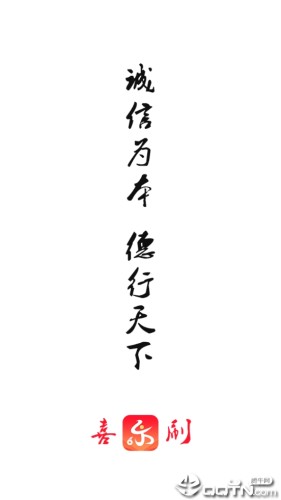 诚信为本 德行天下
喜乐刷